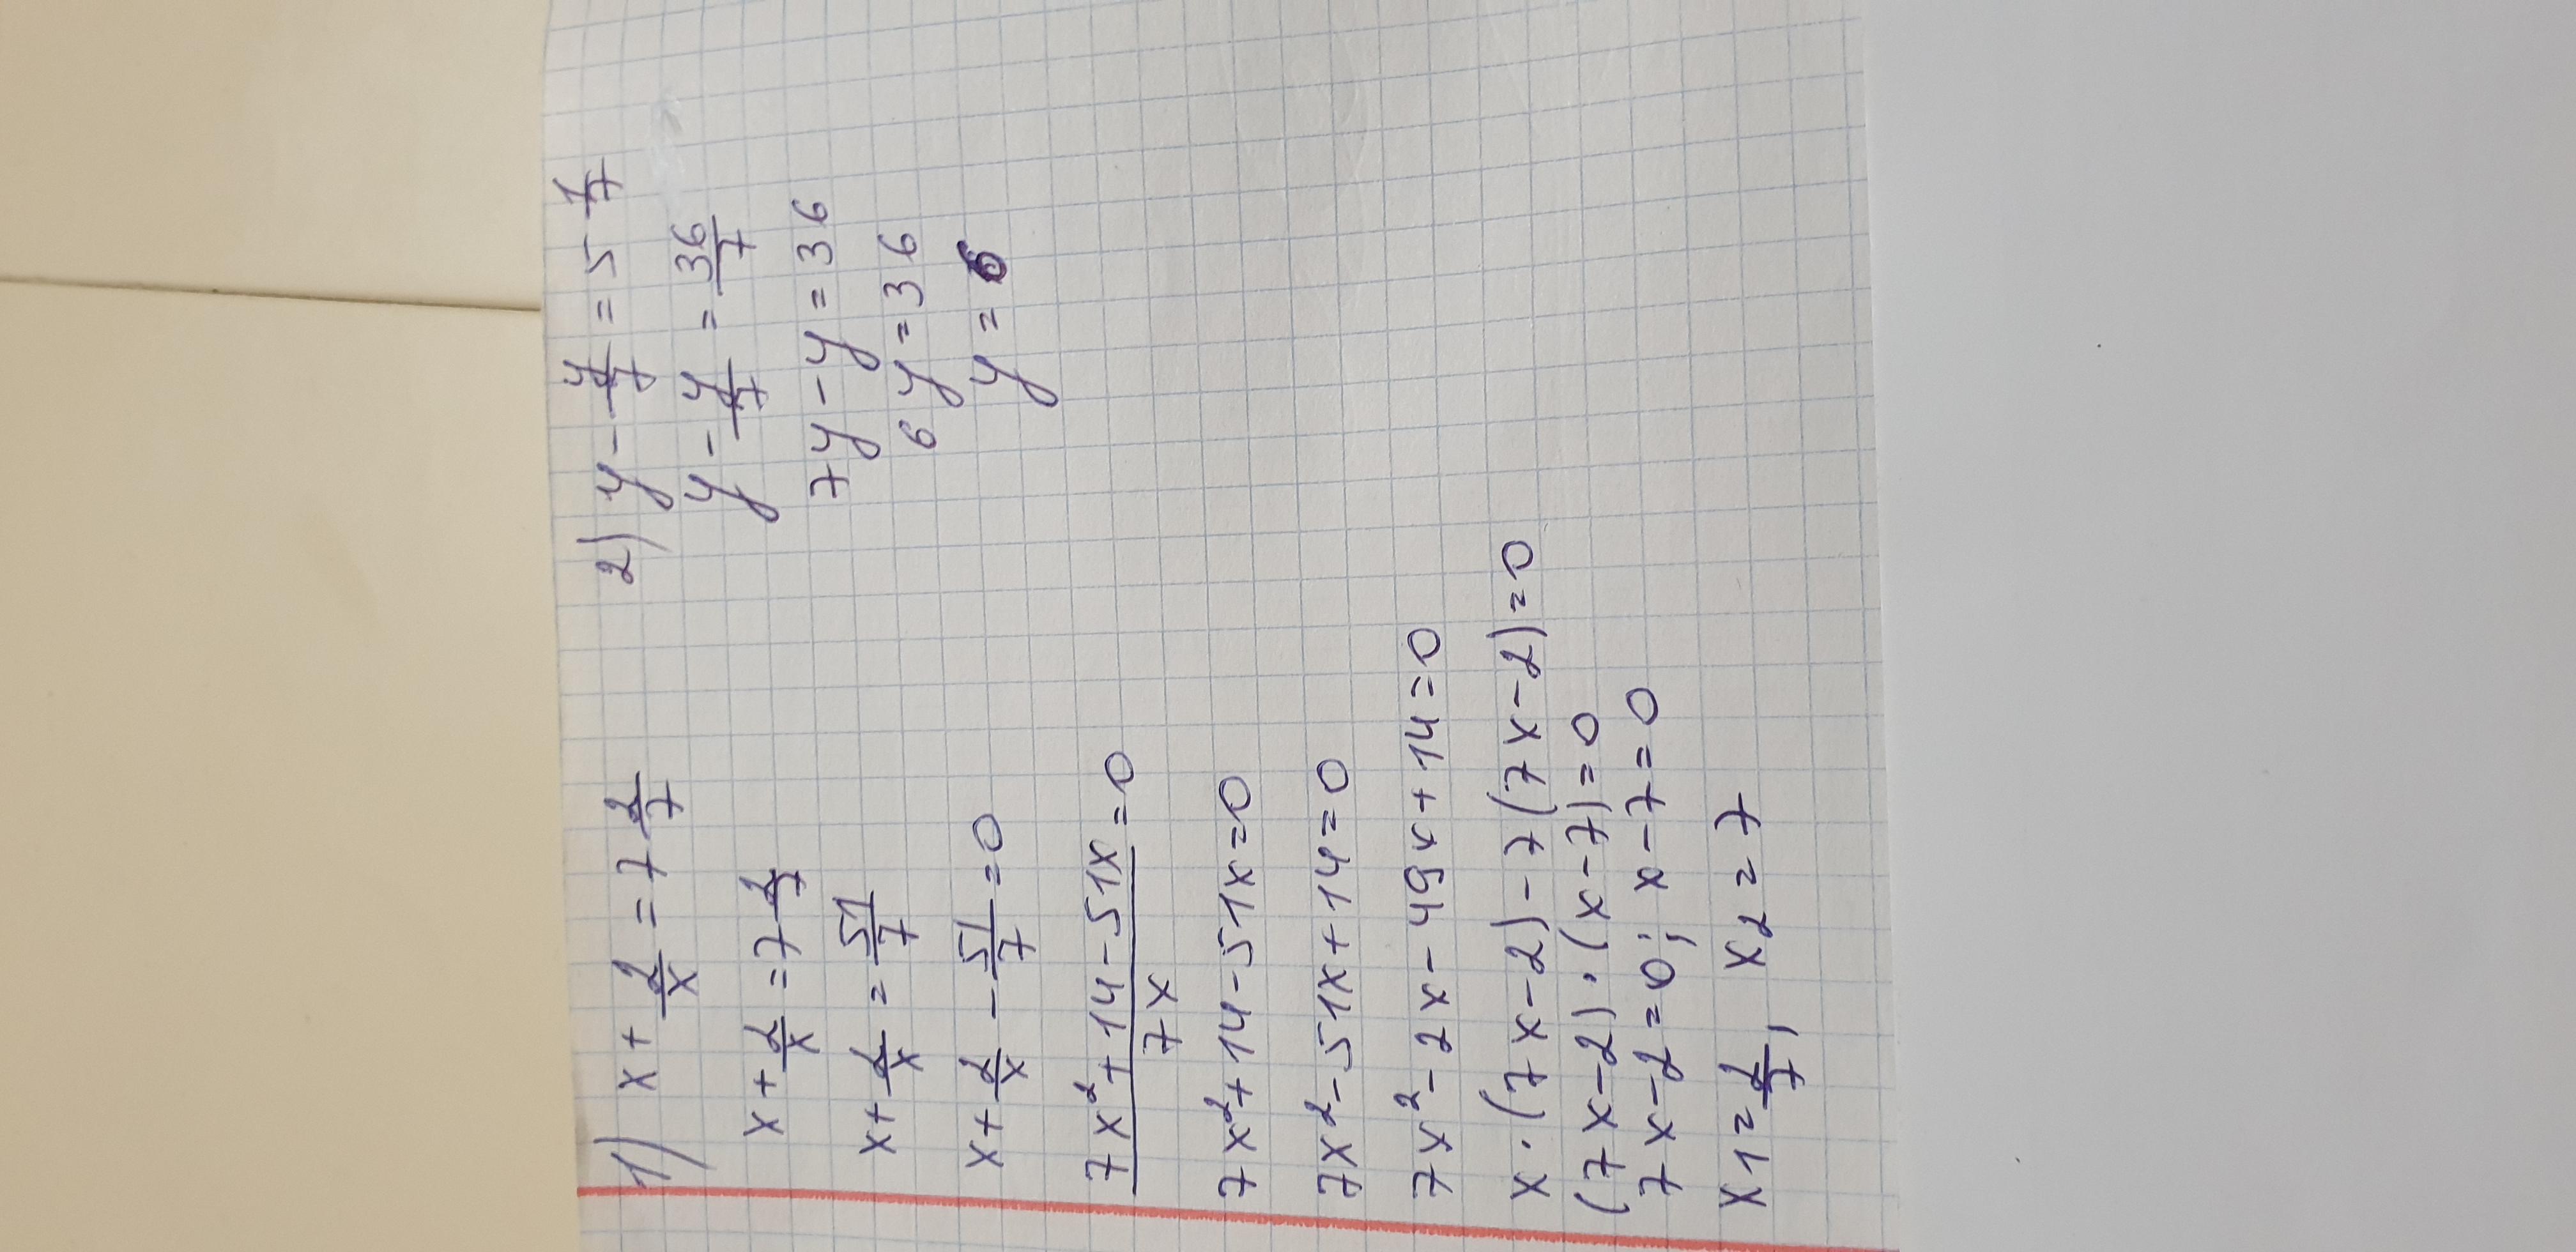 1) x + 2/x = 7 2/7
x + 2/x = 7 2/7
x + 2/x = 51/7
x + 2/x - 51/7 = 0
7x² + 14 - 51x / 7x = 0
7x² + 14 - 51x = 0
7x² - 51x + 14 = 0
7x² - 2x - 49x + 14 = 0
x · (7x - 2) - 7(7x - 2) = 0
(7x - 2) · (x - 7) = 0
7x - 2 = 0; x - 7 = 0
x1 = 2/7, x2 = 7
2) y - y/7 = 5 1/7
y - y/7 = 36/7
7y - y = 36
6y = 36
y = 6